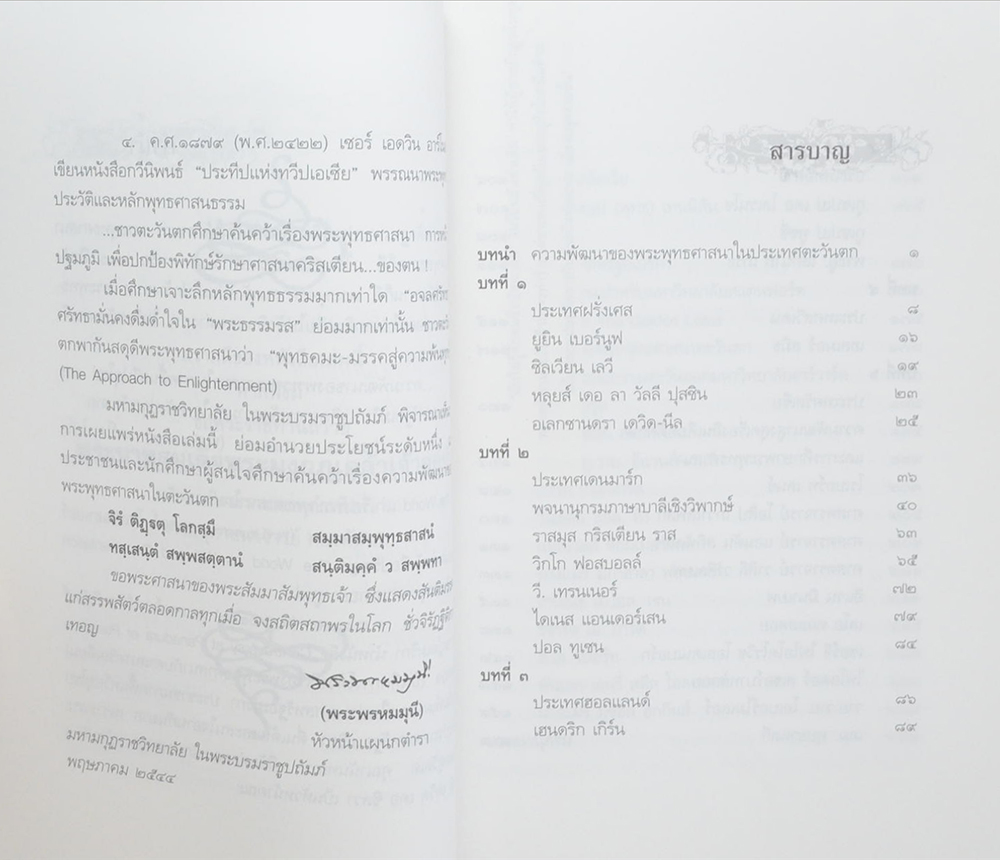 ๔. ค.ศ.๑๘๗๙ (พ.ศ.๒๔๒๒) เซอร์ เอดวิน
เขียนหนังสือกวีนิพนธ์ “ประทีปแห่งทวีปเอเซีย” พรรณนาพระพุทธ
ประวัติและหลักพุทธศาสนธรรม
...ชาวตะวันตกศึกษาค้นคว้าเรื่องพระพุทธศาสนา
ปฐมภูมิ เพื่อปกป้องพิทักษ์รักษาศาสนาคริสเตียน...ของตน !
เมื่อศึกษาเจาะลึกหลักพุทธธรรมมากเท่าใด “อจลศรัท
ศรัทธามั่นคงดื่มด่ำใจใน “พระธรรมรส” ย่อมมากเท่านั้น ชาวตะวัน
ตกพากันสดุดีพระพุทธศาสนาว่า “พุทธคมะ-มรรคสู่ความพ้นทุก
(The Approach to Enlightenment)
มหามกุฏราชวิทยาลัย ในพระบรมราชูปถัมภ์ พิจารณาเห็น
การเผยแพร่หนังสือเล่มนี้ ย่อมอำนวยประโยชน์ระดับหนึ่ง
ประชาชนและนักศึกษาผู้สนใจศึกษาค้นคว้าเรื่องความพัฒนาขอ
พระพุทธศาสนาในตะวันตก
จิรํ ติฏฺฐตุ โลกสฺมึ สมฺมาสมฺพุทฺธสาสนํ
ทสฺเสนฺตํ สพฺพสตฺตานํ สนฺติมคฺคํ ว สพฺพทา
ขอพระศาสนาของพระสัมมาสัมพุทธเจ้า ซึ่งแสดงสันติมรร
แก่สรรพสัตว์ตลอดกาลทุกเมื่อ จงสถิตสถาพรในโลก ชั่วจิรัฏฐิติ
เทอญ
(พระพรหมมุนี)
หัวหน้าแผนกตำรา
มหามกุฏราชวิทยาลัย ในพระบรมราชูปถัมภ์
พฤษภาคม ๒๕๔๔
สารบาญ
บทนำ ความพัฒนาของพระพุทธศาสนาในประเทศตะวันตก ๑
บทที่ ๑
ประเทศฝรั่งเศส ๘
ยูยิน เบอร์นูฟ ๑๖
ซิลเวียน เลวี ๑๙
หลุยส์ เดอ ลา วัลลี ปุสซิน ๒๓
อเลกซานดรา เดวิด-นีล ๒๕
บทที่ ๒
ประเทศเดนมาร์ก ๓๖
พจนานุกรมภาษาบาลีเชิงวิพากษ์ ๔๐
ราสมุส กริสเตียน ราส ๖๓
วิกโก ฟอสบอลล์ ๖๕
วี. เทรนเนอร์ ๗๒
ไดเนส แอนเดอร์เสน ๗๙
ปอล ทูเซน ๘๔
บทที่ ๓
ประเทศฮอลแลนด์ ๘๖
เฮนดริก เกิร์น ๘๙